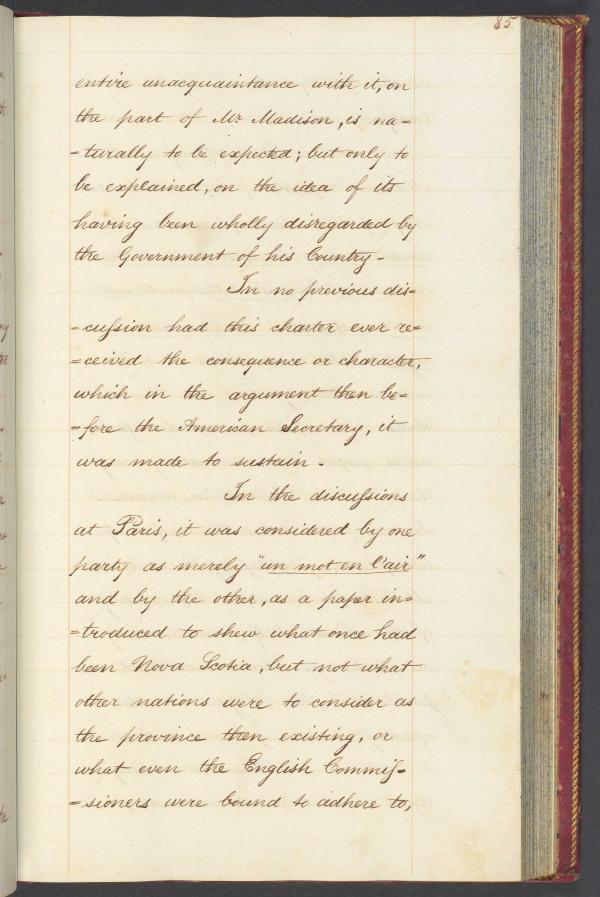 85
entire unacquaintance with it, on
the part of Mr. Madison, is na=
=turally to be expected; but only to
be explained, on the idea of its
having been wholly disregarded by
the Government of his Country -
In no previous dis=
=cuſsion had this charter ever re=
=ceived the consequence or character,
which in the argument then be=
=fore the American Secretary, it
was made to sustain -
In the discuſsions
at Paris, it was considered by one
party as merely "un mot en l'air"
and by the other, as a paper in=
=troduced to shew what once had
been Nova Scotia, but not what
other nations were to consider as
the province then existing, or
what even the English Commiſ=
=sioners were bound to adhere to,